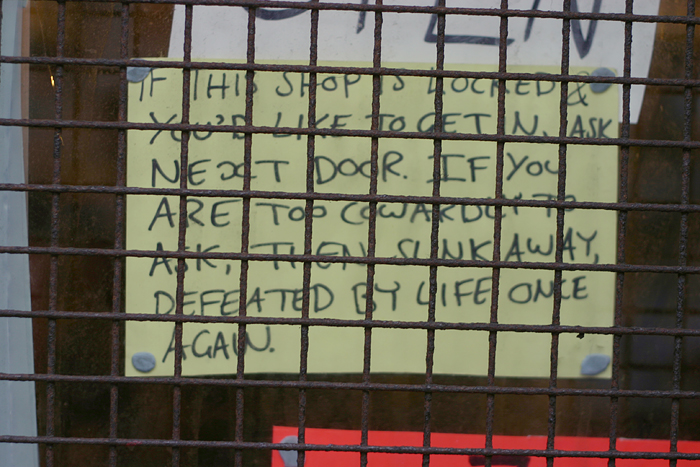 OPEN
IF THIS SHOP IS LOCKED &
YOU'D LIKE TO GET IN, ASK
NEXT DOOR. IF YOU
ARE TOO COWARDLY TO
ASK, THEN SLINK AWAY,
DEFEATED BY LIFE ONCE
AGAIN.